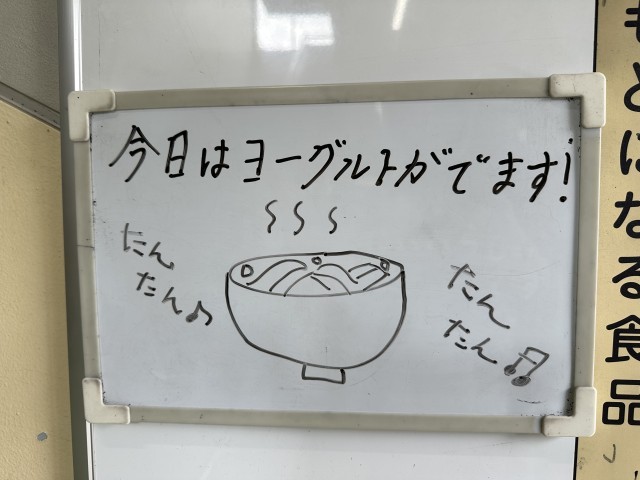 今日はヨーグルトがでます!
たん
たん♪
たん
たん♫
もとになる食品